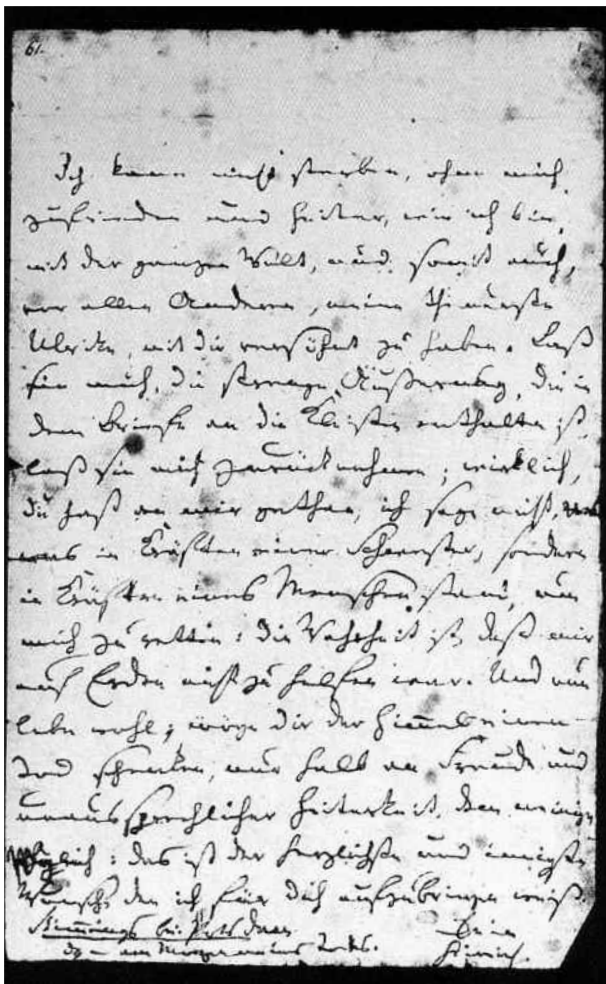 61.
Ich kann nicht sterben, ohne mich,
zufrieden und heiter, wie ich bin,
mit der ganzen Welt, und somit auch,
vor allen Anderen, meine theuerste
Ulrike, mit dir versöhnt zu haben. Laß
sie mich, die strenge Äußerung, die in
dem Briefe an die Kleisten enthalten ist,
laß sie mich zurücknehmen; wirklich,
du hast an mir gethan, ich sage nicht,
was in Kräften einer Schwester, sondern
in Kräften eines Menschen stand, um
mich zu retten: die Wahrheit ist, daß mir
auf Erden nicht zu helfen war. Und nun
lebe wohl; möge dir der Himmel einen
Tod schenken, nur halb an Freude und
unaussprechlicher Heiterkeit, dem meinigen
gleich: das ist der herzlichste und innigste
Wunsch, den ich für dich aufzubringen weiß.
Stimmings bei Potsdam Dein
d. – am Morgen meines Todes. Heinrich.